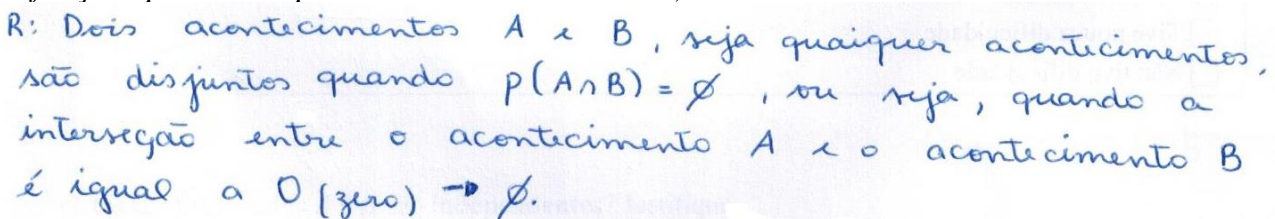 R: Dois acontecimentos A e B, seja quaiquer acontecimentos,
são disjuntos quando p(A∩B) = ∅, ou seja, quando a
interseção entre o acontecimento A e o acontecimento B
é igual a 0 (zero) → ∅.